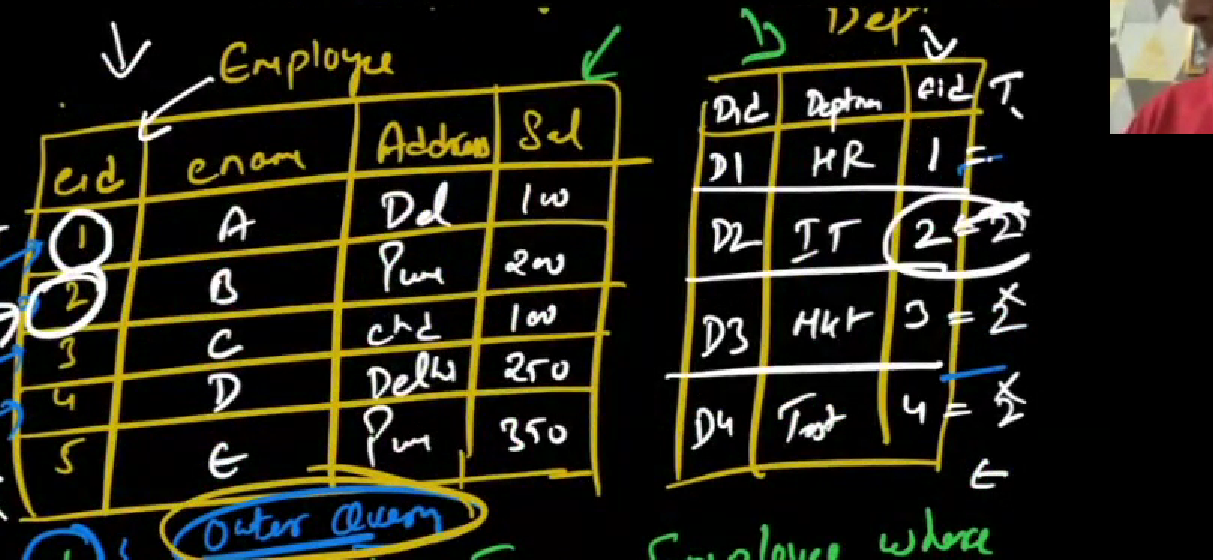 Employee
eid ename Address Sal
1 A Del 100
2 B Pune 200
3 C chd 100
4 D Delhi 250
5 E Pune 350
Dept
Did Deptnm eid T
D1 HR 1 =
D2 IT 2 = 2
D3 Mkt 3 = 2
D4 Test 4 = 2
E
Outer Query
Employee where